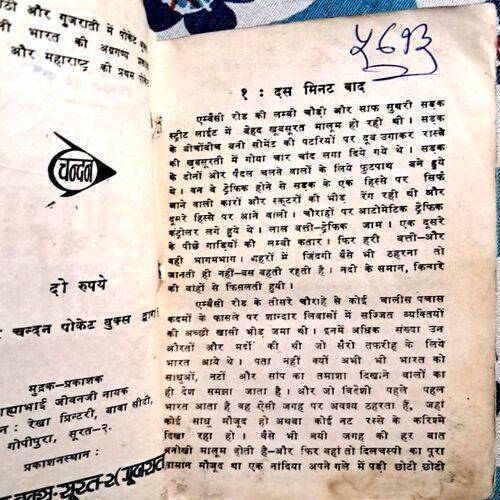 ठी और गुजराती में पोकेट बुक्स
ली भारत की अग्रगण्य
और महाराष्ट्र की प्रथम पोकेट
चन्दन
दो रुपये
चन्दन पोकेट बुक्स द्वारा
मुद्रक-प्रकाशक
ह्याभाई जीवनजी नायक
न : रेखा प्रिन्टरी, बाबा सीदी,
गोपीपुरा, सूरत-२.
प्रकाशनस्थान :
१ : दस मिनट बाद
एम्बैसी रोड की लम्बी चौड़ी और साफ सुथरी सड़क
स्ट्रीट लाईट में बेहद खूबसूरत मालूम हो रही थी । सड़क
के बीचोंबीच बनी सीमेंट की पटरियों पर दूब उगाकर रास्ते
की खूबसूरती में गोया चार चांद लगा दिये गये थे । सड़क
के दोनों ओर पैदल चलने वालों के लिये फुटपाथ बने हुये
थे । वन वे ट्रेफिक होने से सड़क के एक हिस्से पर सिर्फ
जाने वाली कारों और स्कूटरों की भीड़ रेंग रही थी और
दूसरे हिस्से पर आने वाली । चौराहों पर आटोमेटिक ट्रेफिक
कंट्रोलर लगे हुये थे । लाल बत्ती-ट्रेफिक जाम । एक दूसरे
के पीछे गाड़ियों की लम्बी कतार । फिर हरी बत्ती-और
वही भागमभाग । शहरों में जिंदगी बैसे भी ठहरना तो
जानती ही नहीं-बस बहती रहती है । नदी के समान, किनारे
की बांहों से फिसलती हुयी ।
एम्बैसी रोड के तीसरे चौराहे से कोई चालीस पचास
कदमों के फासले पर शान्दार लिबासों में सज्जित व्यक्तियों
की अच्छी खासी भीड़ जमा थी । इनमें अधिक संख्या उन
औरतों और मर्दो की थी जो सैरो तफरीह के लिये
भारत आये थे । पता नहीं क्यों अभी भी भारत को
साधुओं, नटों और सांप का तमाशा दिखाने वालों का
ही देश समझा जाता है । और जो बिदेशी पहले पहल
भारत आता है वह ऐसी जगह पर अवश्य ठहरता हैं, जहां
कोई साधु मौजूद हो अथवा कोई नट रस्से के करिश्मे
दिखा रहा हो । बैसे भी नयी जगह की हर बात
अनोखी मालूम होती है-और फिर वहां तो दिलचस्पी का पूरा
सामान मौजूद था एक नांदिया अपने गले में पड़ी छोटी छोटी